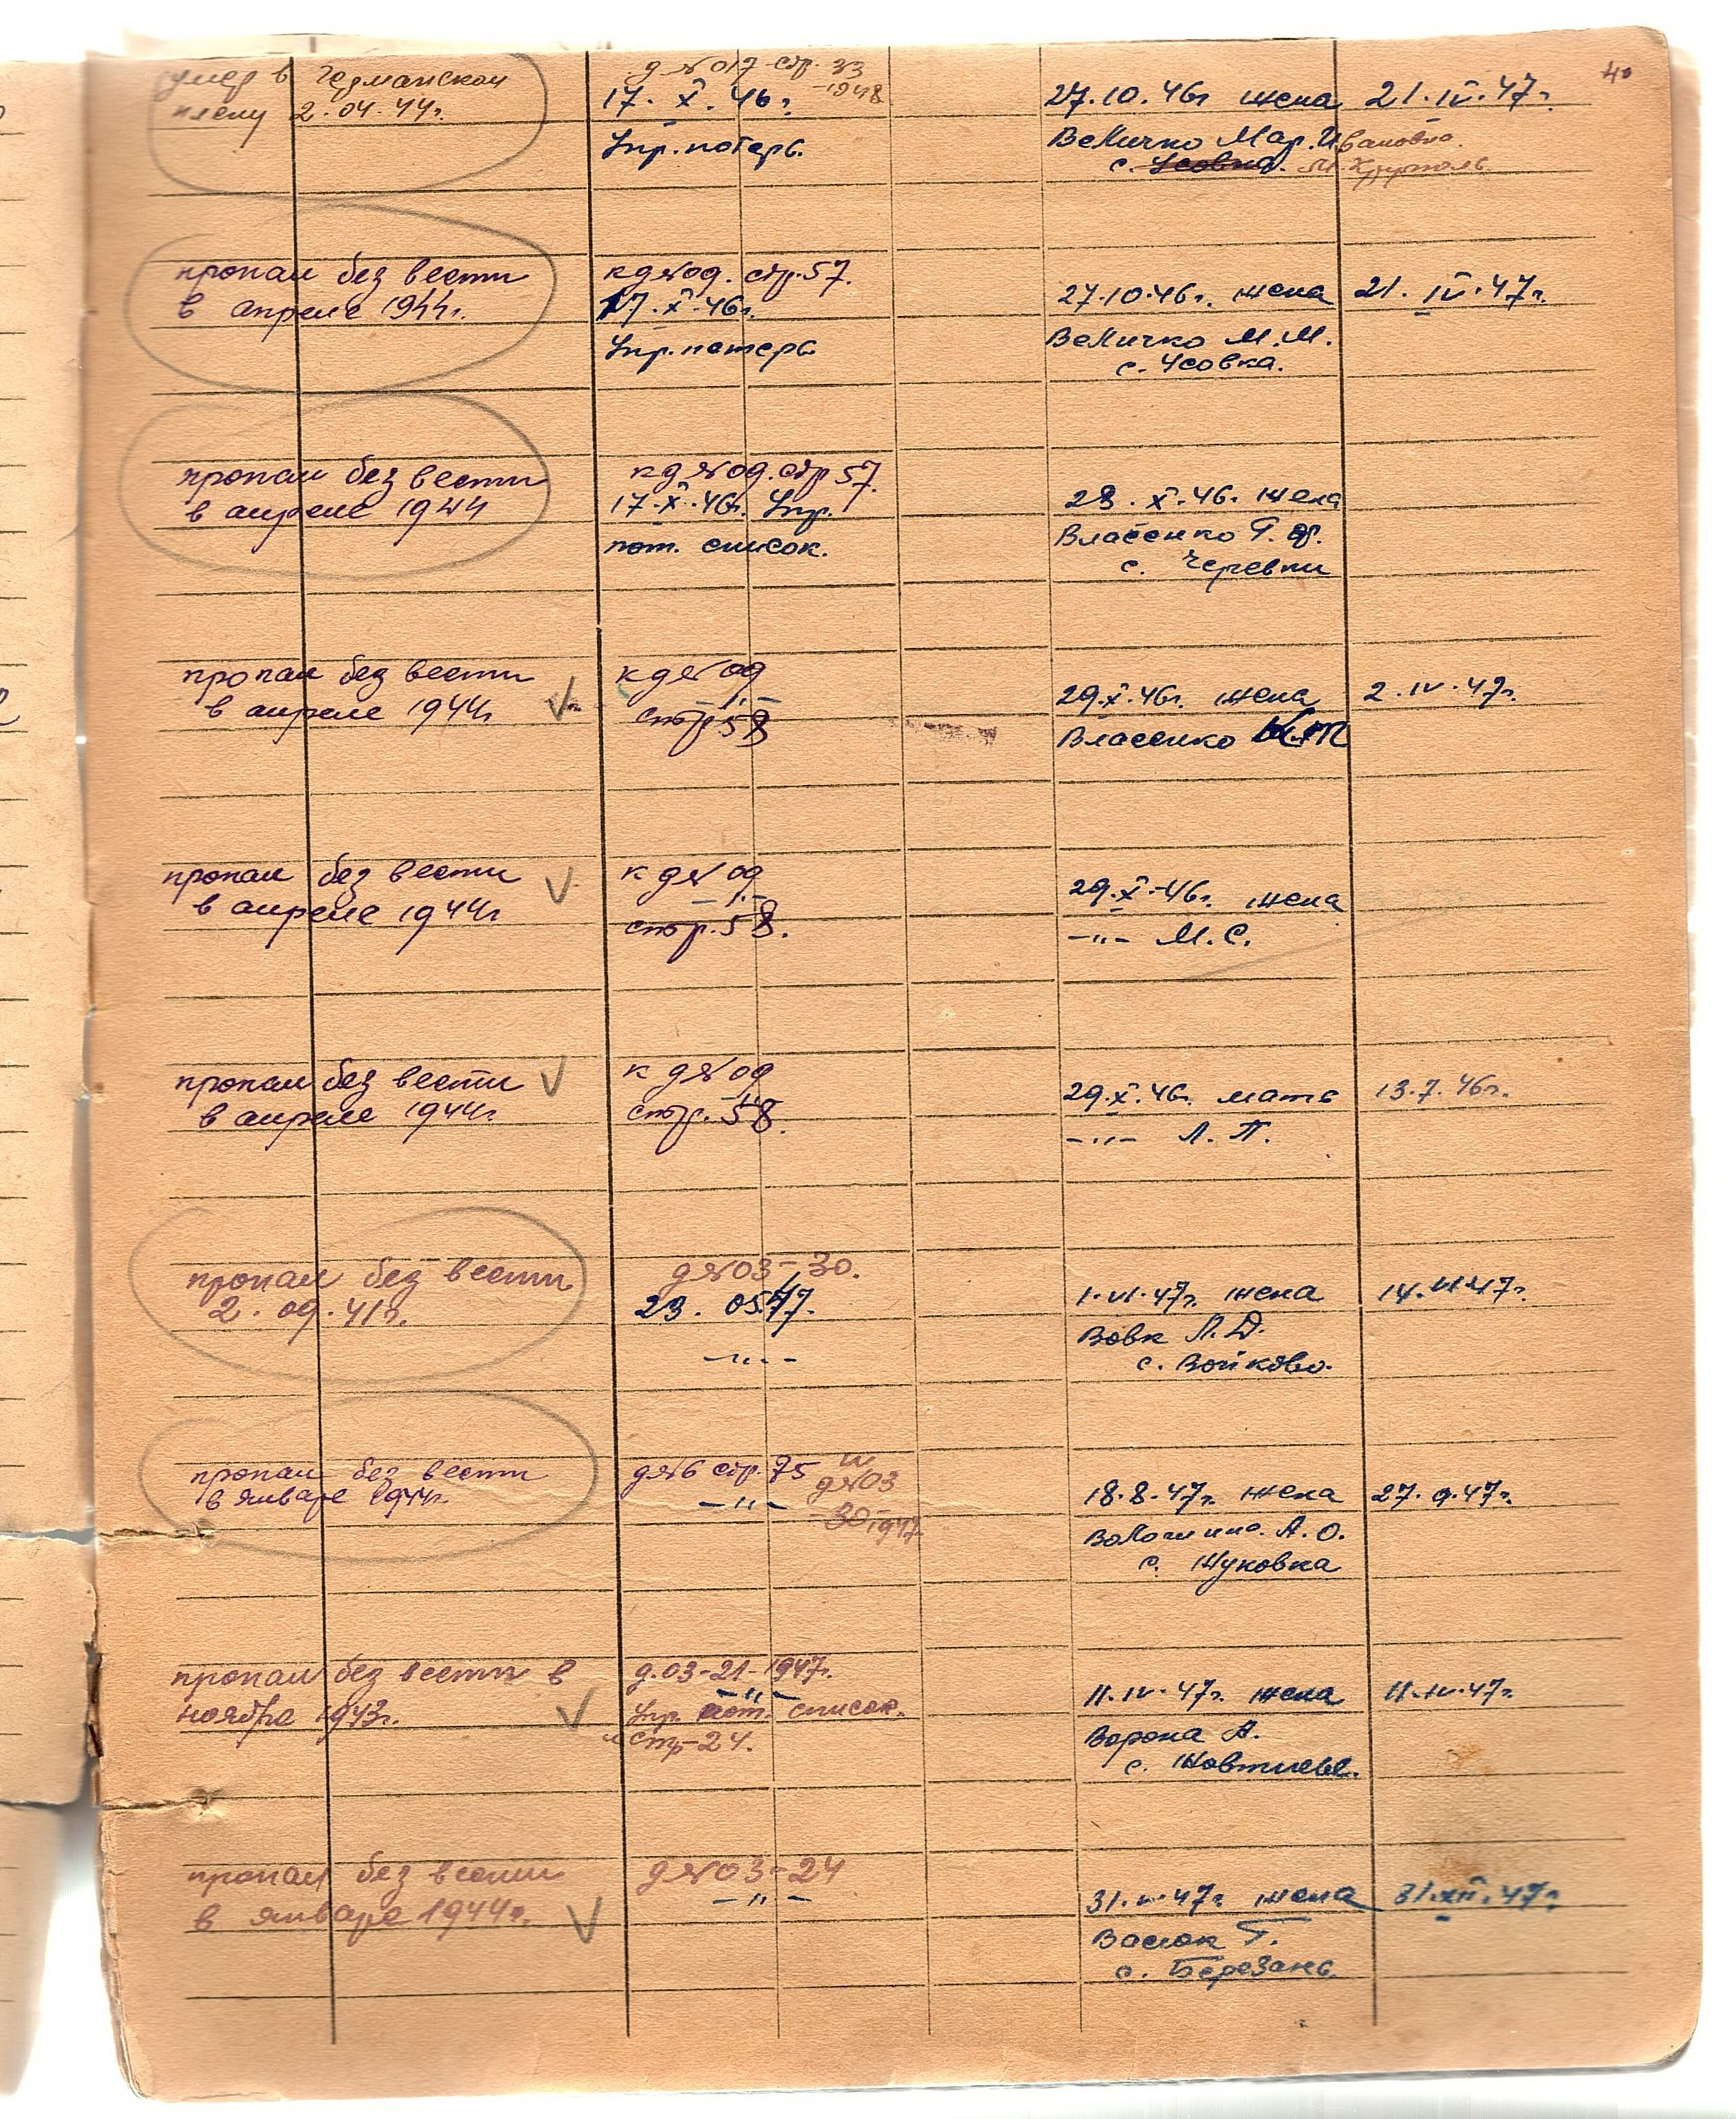 40
умер в германском
плену 2.04.44г.
д №017 стр. 33
-1948
17. X. 46г.
Упр. потерь.
27.10.46г жена
Величко Мар. Ивановна
с. Усовка.
21. IV. 47г.
пропал без вести
в апреле 1944г.
к д №09. стр. 57.
17. X. 46г.
Упр. потерь
27.10.46г. жена
Величко М.М.
с. Усовка.
21. IV. 47г.
пропал без вести
в апреле 1944
к д №09. стр 57.
17. X. 46г. Упр.
пот. список.
28. X. 46. жена
Власенко Г.
с. Черевки
пропал без вести
в апреле 1944г
к д № 09
стр 58
29. X. 46г. жена
Власенко
2. IV. 47г.
пропал без вести
в апреле 1944г
к д № 09
-"-
стр. 58.
29. X. 46г. жена
-"- М. С.
пропал без вести
в апреле 1944г.
к д № 09
стр. 58.
29. X. 46г. мать
-"- Л. П.
13. 7. 46г.
пропал без вести
2. 09. 41г.
д №03-30.
23. 05.47.
-"-
1. VI. 47г. жена
Вовк Л. Д.
с. Войково.
14. VI 47г.
пропал без вести
в январе 1944г.
д №6 стр. 75 и
-"- д №03
30-1947
18. 8. 47г. жена
Волошина. А. О.
с. Жуковка
27. 9. 47г.
пропал без вести в
ноября 1943г.
д. 03-21-1947г.
-"-
Упр. пот. список.
стр-24.
11. IV. 47г. жена
Ворона А.
с.
11. IV. 47г.
пропал без вести
в январе 1944г.
д №03-24
-"-
31. 47г. жена
Васюк Г.
с. Березань.
31. XII. 47г.